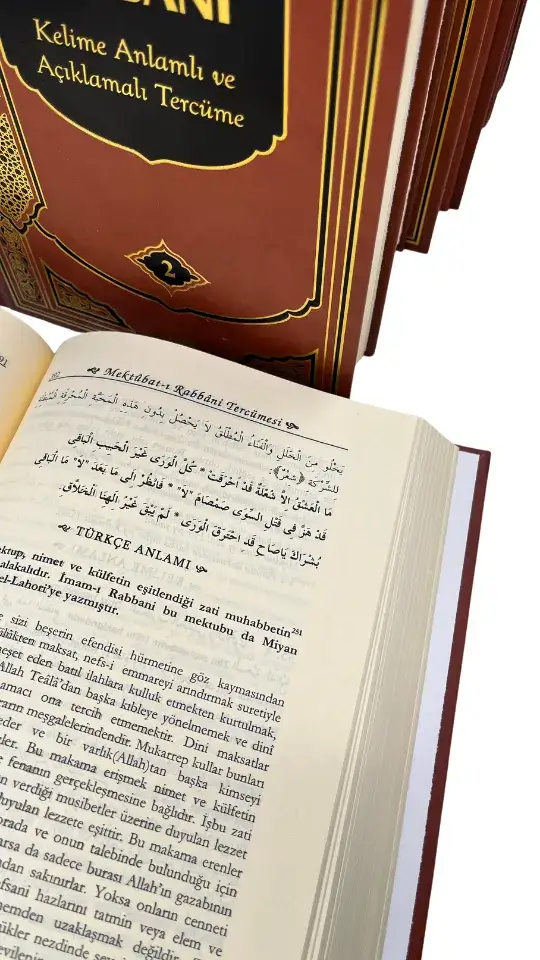 BANİ
Kelime Anlamlı ve
Açıklamalı Tercüme
2
Mektûbat-ı Rabbâni Tercümesi
يَخْلُو مِنَ الْخَلَلِ وَالْفَنَاءُ الْمُطْلَقُ لاَ يَحْصُلُ بِدُونِ هَذِهِ الْمَحَبَّةِ الْمُحْرِقَةِ
لِلشِّرْكَةِ ﴿شِعْرٌ﴾:
مَا الْعَشْقُ اِلاَّ شُعْلَةٌ قَدْ اَحْرَقَتْ * كُلَّ الْوَرَى غَيْرَ الْحَبِيبِ الْبَاقِى
قَدْ هَزَّ فِى قَتْلِ السِّوَى صَمْصَامَ "لاَ" * فَانْظُرْ اِلَى مَا بَعْدَ "لاَ" مَا الْبَاقِى
بُشْرَاكَ يَاصَاحِ قَدِ احْتَرَقَ الْوَرَى * لَمْ يَبْقَ غَيْرُ اِلَهِنَا الْخَلاَّقِ.
TÜRKÇE ANLAMI
ktup, nimet ve külfetin eşitlendiği zati muhabbetin251
alakalıdır. İmam-ı Rabbani bu mektubu da Miyan
el-Lahoti'ye yazmıştır.
e sizi beşerin efendisi hürmetine göz kaymasından
ülükten maksat, nefs-i emmareyi arındırmak suretiyle
neşet eden batıl ilahlara kulluk etmekten kurtulmak,
Allah Teâlâ'dan başka kıbleye yönelmemek ve dinî
amacı ona tercih etmemektir. Dini maksatlar
rarın meşgalelerindendir. Mukarrep kullar bunları
eder ve bir varlık(Allah)tan başka kimseyi
ler. Bu makama erişmek nimet ve külfetin
e fenanın gerçekleşmesine bağlıdır. İşbu zati
n verdiği musibetler üzerine duyulan lezzet
duyulan lezzete eşittir. Bu makama erenler
orada ve onun talebinde bulunduğu için
arsa da sadece burası Allah'ın gazabının
ndan sakınırlar. Yoksa onların cenneti
efsani hazlarını tatmin veya elem ve
nemden uzaklaşmak değildir.
ükler nezdinde